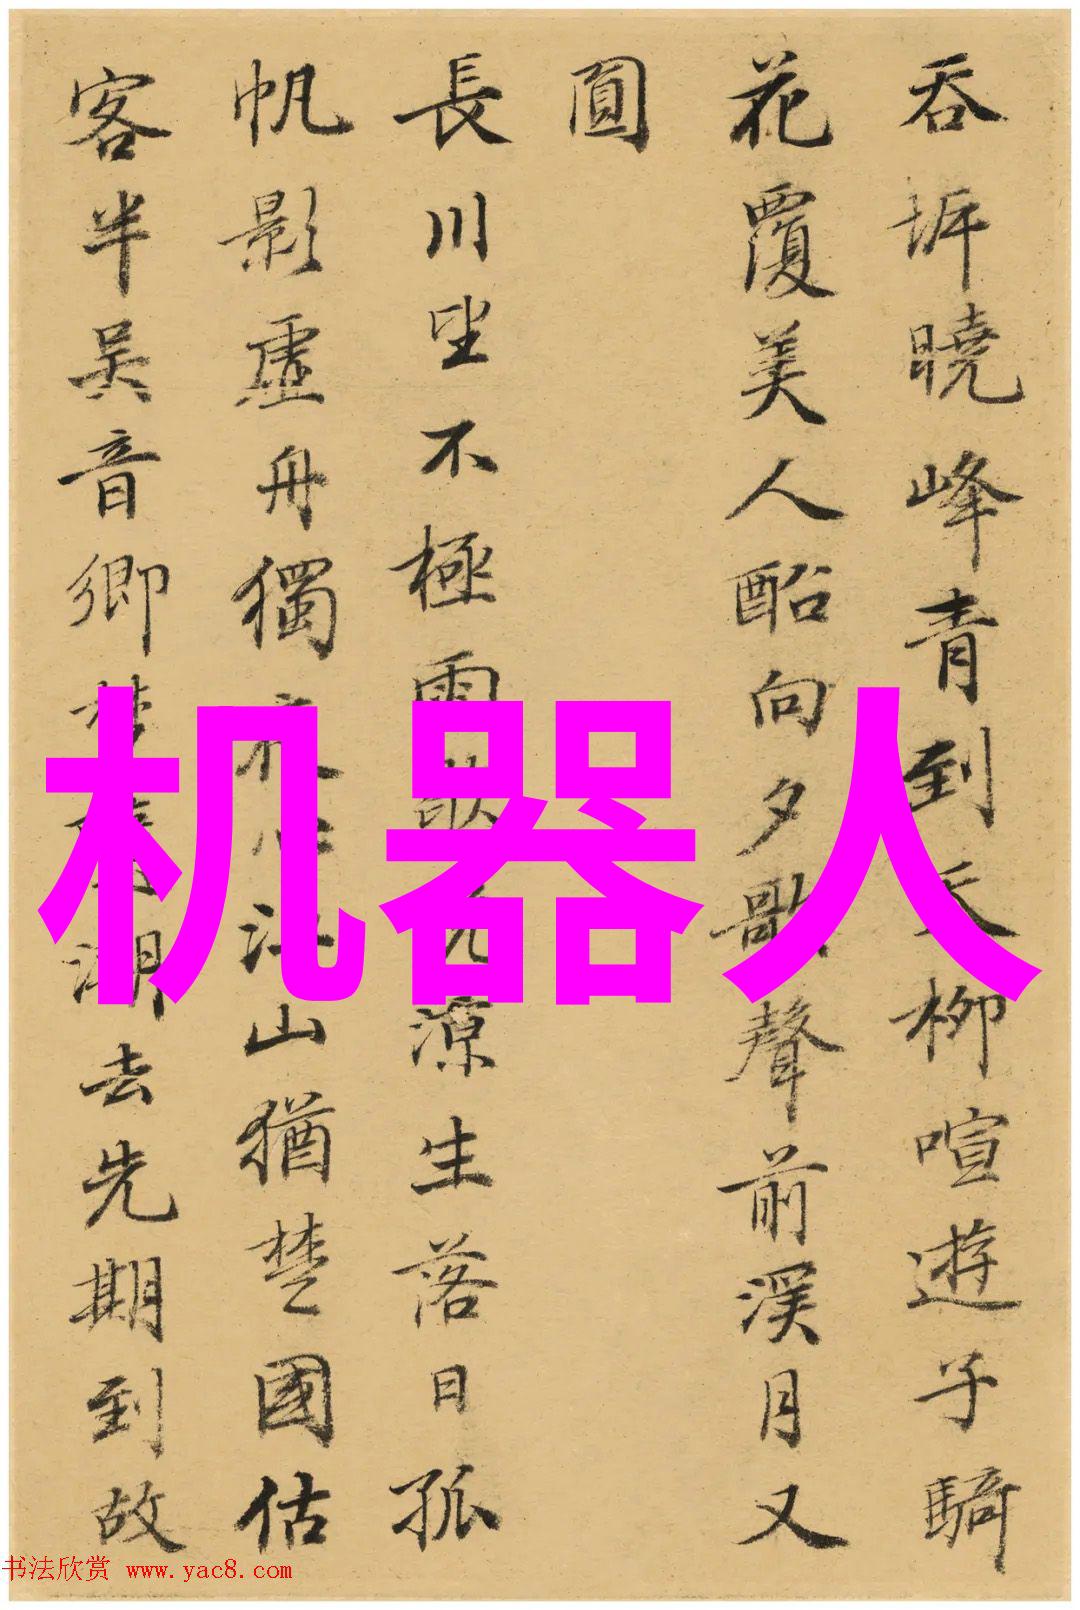 吞坼曉峰青到天柳喧遊子騎
花覆美人酩向夕歌聲前溪月又
圓
長川坐不極雨歇晚涼生落日孤
帆影虛舟獨夜心江山猶楚國估
客半吴音鄉楚湖去先期到故
机器人
书法欣赏 www.yac8.com